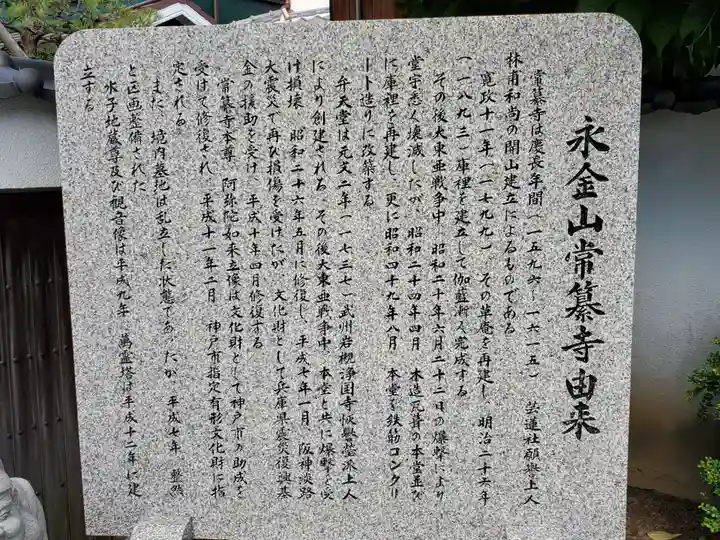 永金山常纂寺由来
常纂寺は慶長年間(一五九六〜一六一五) 芸蓮社願誉上人
林甫和尚の開山建立によるものである
寛政十一年(一七九九) その草庵を再建し 明治二十六年
(一八九三)庫裡を建立して伽藍漸く完成する
その後大東亜戦争中 昭和二十年六月二十二日の爆撃により
堂宇悉く壊滅したが、昭和二十四年四月 木造瓦葺の本堂並び
に庫裡を再建し 更に昭和四十九年八月 本堂を鉄筋コンクリ
ート造りに改築する
弁天堂は元文二年(一七三七)武州岩槻浄国寺 上人
により創建される その後大東亜戦争中 本堂と共に爆撃を受
け損壊 昭和二十六年五月に修復し、平成七年一月 阪神淡路
大震災で再び損傷を受けたが 文化財として兵庫県震災復興基
金の援助を受け 平成十年四月修復する
常纂寺本尊 阿弥陀如来立像は文化財として神戸市の助成を
受けて修復され 平成十一年二月 神戸市指定有形文化財に指
定される
また 境内墓地は乱立した状態であったが 平成七年 整然
と区画整備された
水子地蔵尊及び観音像は平成九年 萬霊塔は平成十二年に建
立する